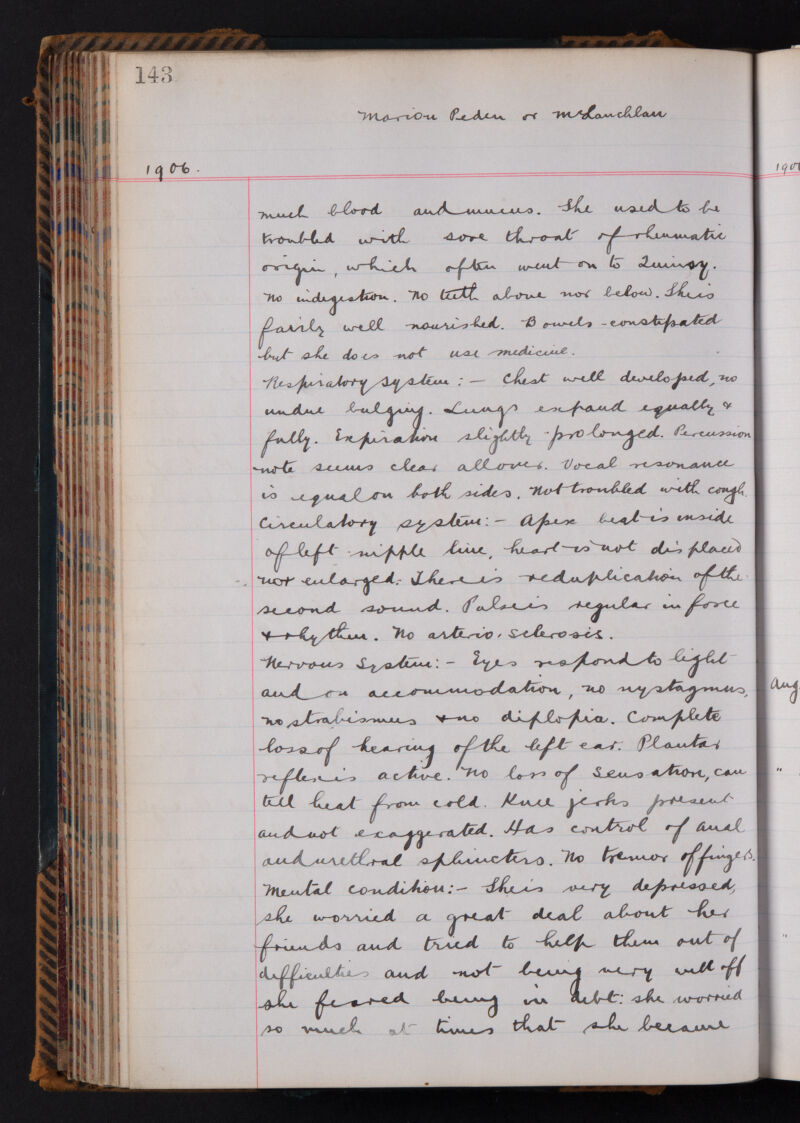 143
Marion Peden or McLanchlan
1906.
much blood and mucus. She used to be
troubled with sore throat of rheumatic
origin, which often went on to Quinsy.
No indegestion. No teeth above nor below. She is
fairly well nourished. Bowels - constipated
but she does not use medicine.
Respiratory system : - Chest well developed, no
undue bulging. Lungs expand equally &
fully. Expiration slightly prolonged. Percussion
note seems clear all over. Vocal resonance
is equal on both sides. Not troubled with cough.
Circulatory system: - Apex beat is inside
of left nipple line, heart is not displaced
nor enlarged. There is reduplication of the
second sound. Pulse is regular in force
& rhythm. No arterio-sclerosis.
Nervous System: - Eyes respond to light
and on accommodation, no nystagmus,
no strabismus & no diplopia. Complete
loss of hearing of the left ear. Plantar
reflex is active. No loss of sensation, can
tell heat from cold. Knee jerks present
and not exaggerated. Has control of anal
and urethral sphincters. No tremor of fingers.
Mental condition: - She is very depressed,
she worried a great deal about her
friends and tried to help them out of
difficulties and not being very well off
she feared being in debt: she worried
so much at times that she became
190
Aug
"
"